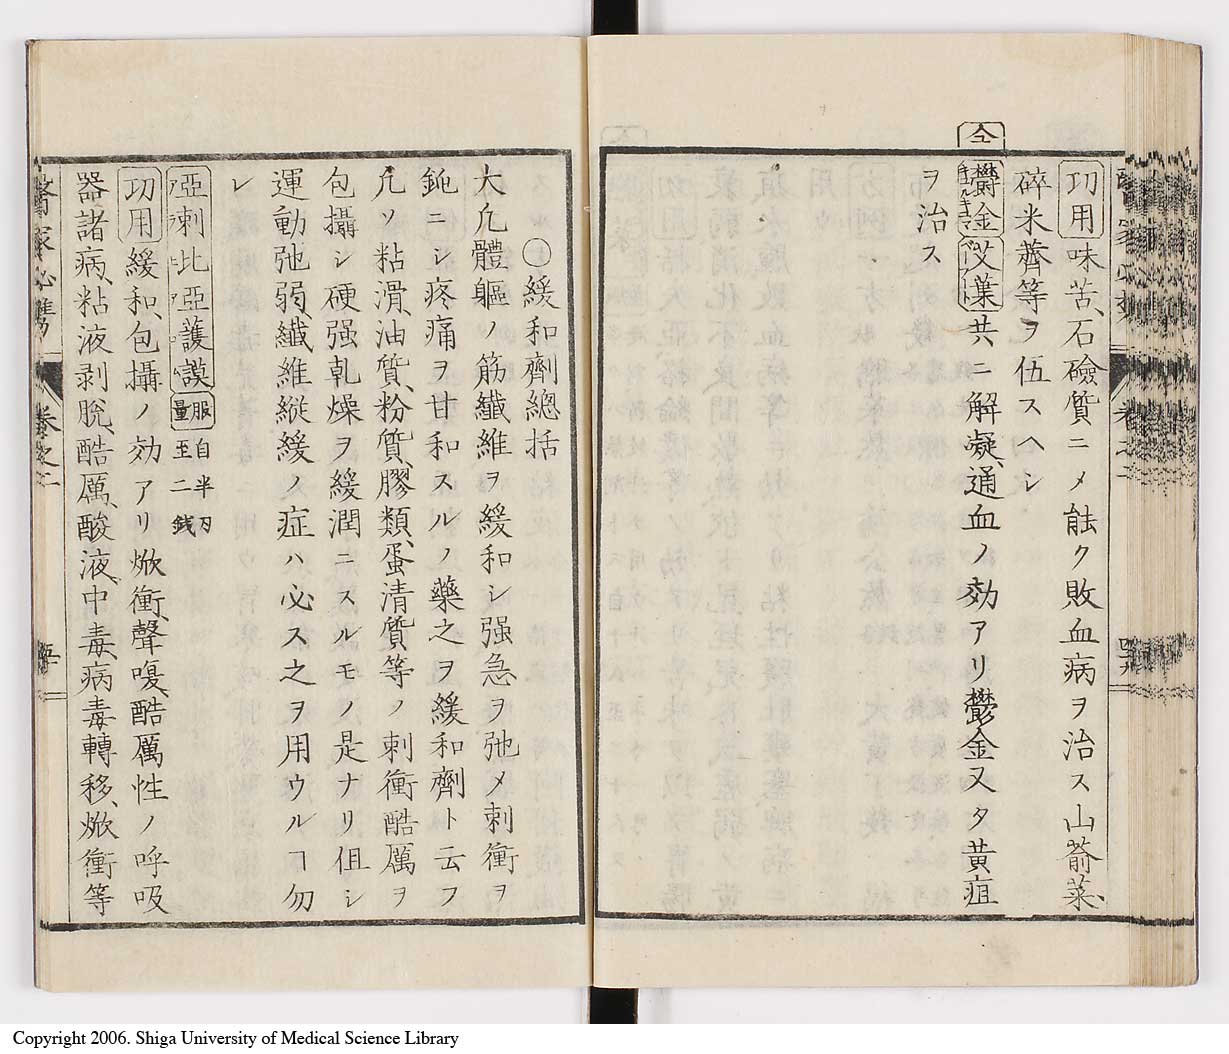 功用味苦石鹼質ニメ能ク敗血病ヲ治ス山萮菜
碎米薺等ヲ伍スヘシ
仝
鬱金艾葉共ニ解凝通血ノ効アリ鬱金又タ黄疸
ヲ治ス
○緩和劑總括
大凡體軀ノ筋纖維ヲ緩和シ强急ヲ弛メ刺衝ヲ
鈍ニシ疼痛ヲ甘和スルノ藥之ヲ緩和劑ト云フ
凡ソ粘滑油質粉質膠類蛋清質等ノ刺衝酷厲ヲ
包攝シ硬强乾燥ヲ緩潤ニスルモノ是ナリ伹シ
運動弛弱纖維縱緩ノ症ハ必ス之ヲ用ウルヿ勿
レ
亞剌比亞護謨服量自半刄至二錢
功用緩和包攝ノ効アリ焮衝聲嗄酷厲性ノ呼吸
器諸病粘液剥脫酷厲酸液中毒病毒轉移焮衝等
醫家必携
卷之二
Copyright 2006. Shiga University of Medical Science Library